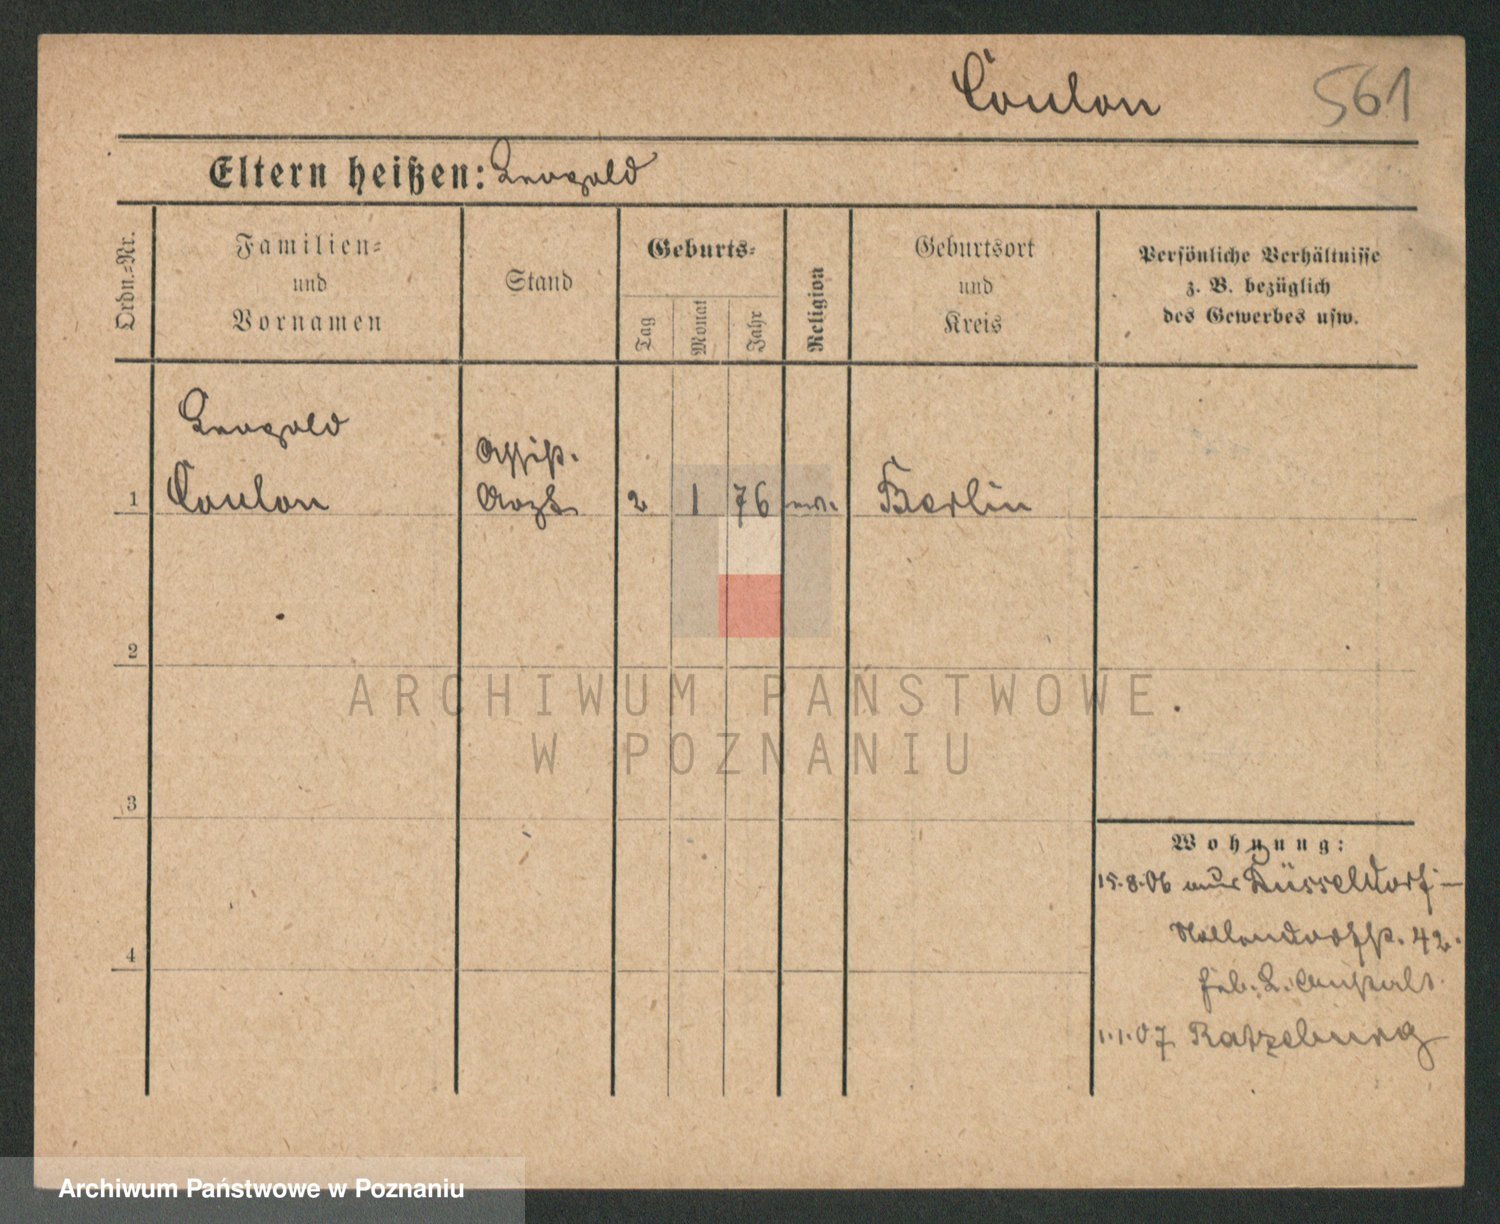 Coulon 561
Eltern heißen: Leopold
Ordn.-Nr.
Familien-
und
Vornamen
Stand
Geburts-
Tag
Monat
Jahr
Religion
Geburtsort
und
Kreis
Persönliche Verhältnisse
z. B. bezüglich
des Gewerbes usw.
Leopold
Assist.
1 Coulon Arzt 2 1 76 Berlin
2
3
4
Wohnung:
15.8.06 aus Düsseldorf-
42.
1.1.07 Ratzeburg
ARCHIWUM PAŃSTWOWE
W POZNANIU
Archiwum Państwowe w Poznaniu